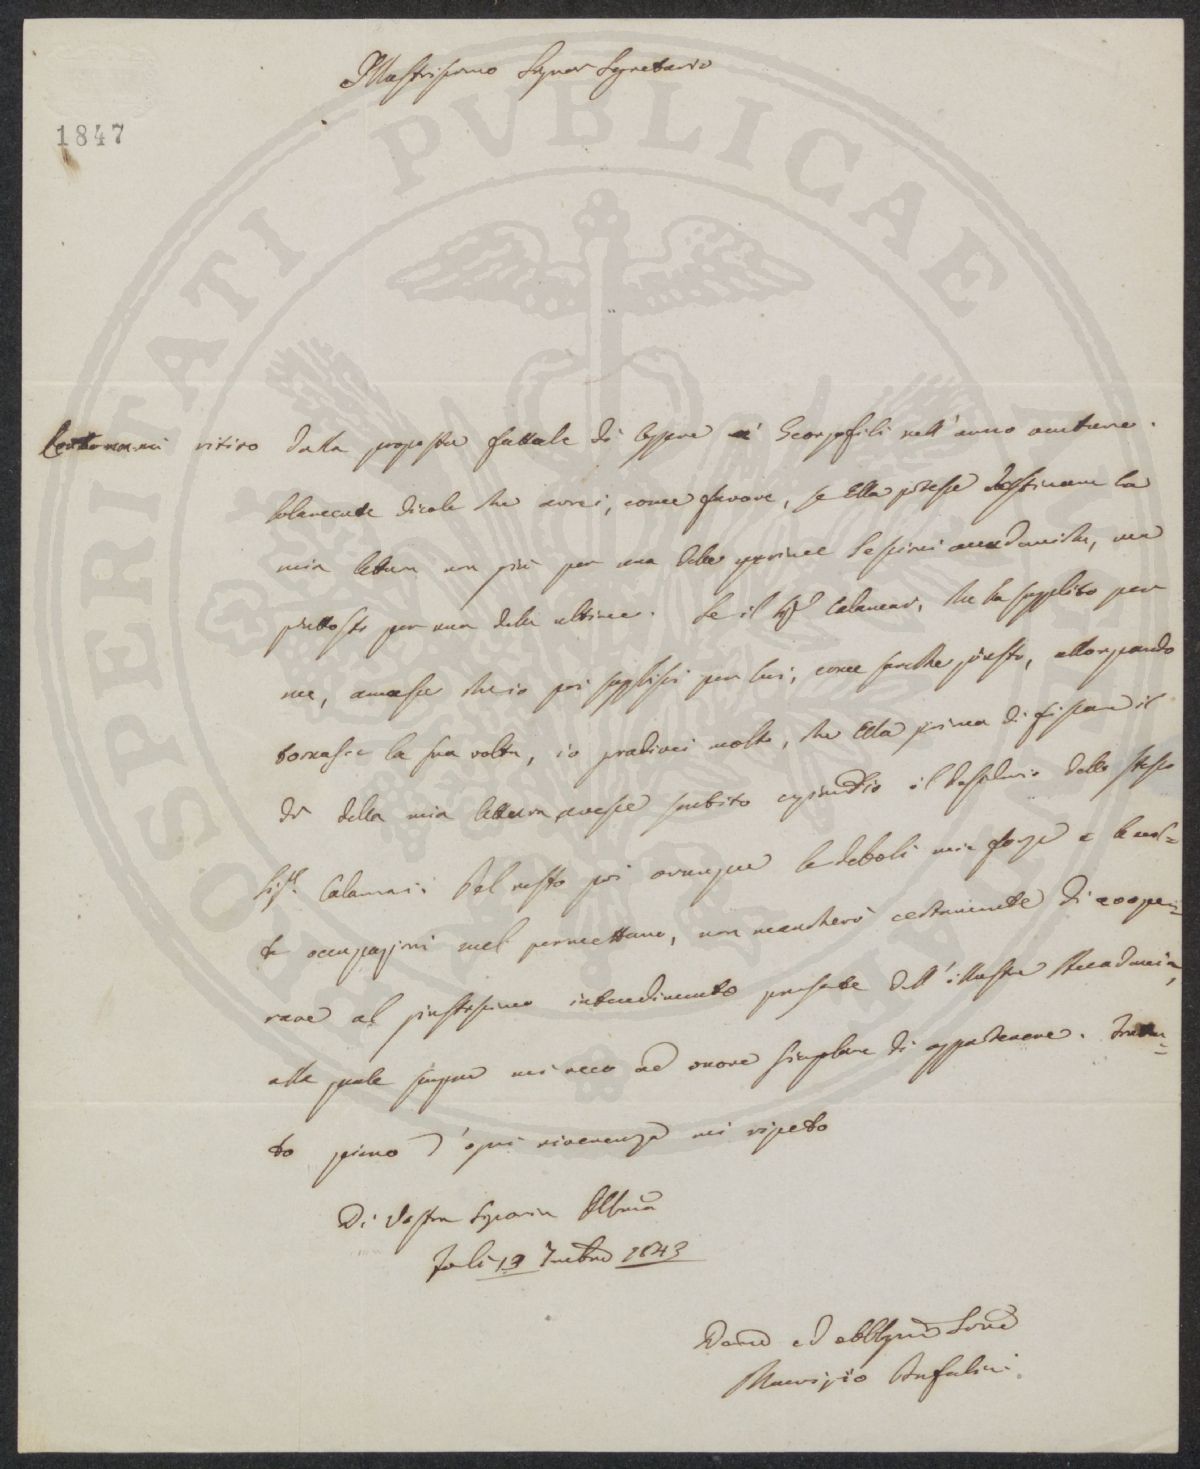 Illustrissimo Signor Segretario
1847
PROSPERITATI PVBLICAE
ritiro dalla proposta fattale di leggere a' Georgofili nell'anno venturo.
Solamente dirole che avrei, come favore, se Ella potesse destinare la
mia lettura non già per una delle prime Sessioni accademiche, ma
piuttosto per una delle ultime. Se il Sigr Calamai, che ha supplito per
me, amasse che io poi supplissi per lui, come sarebbe giusto, allorquando
tornasse la sua volta, io gradirei molto, che Ella prima di fissare il
dì della mia lettura, avesse subito il desiderio dello stesso
Sigr. Calamai. Del resto poi ovunque le deboli mie forze e le mol=
te occupazioni mel permettano, non mancherò certamente di coope=
rare al giustissimo intendimento dell'illustre Accademia,
alla quale sempre mi reco ad onore singolare di appartenere. Frattan=
to pieno d'ogni riverenza mi ripeto
Di Vostra Signoria Illma
19 1843
Devmo ed obblgmo Servre
Maurizio Bufalini